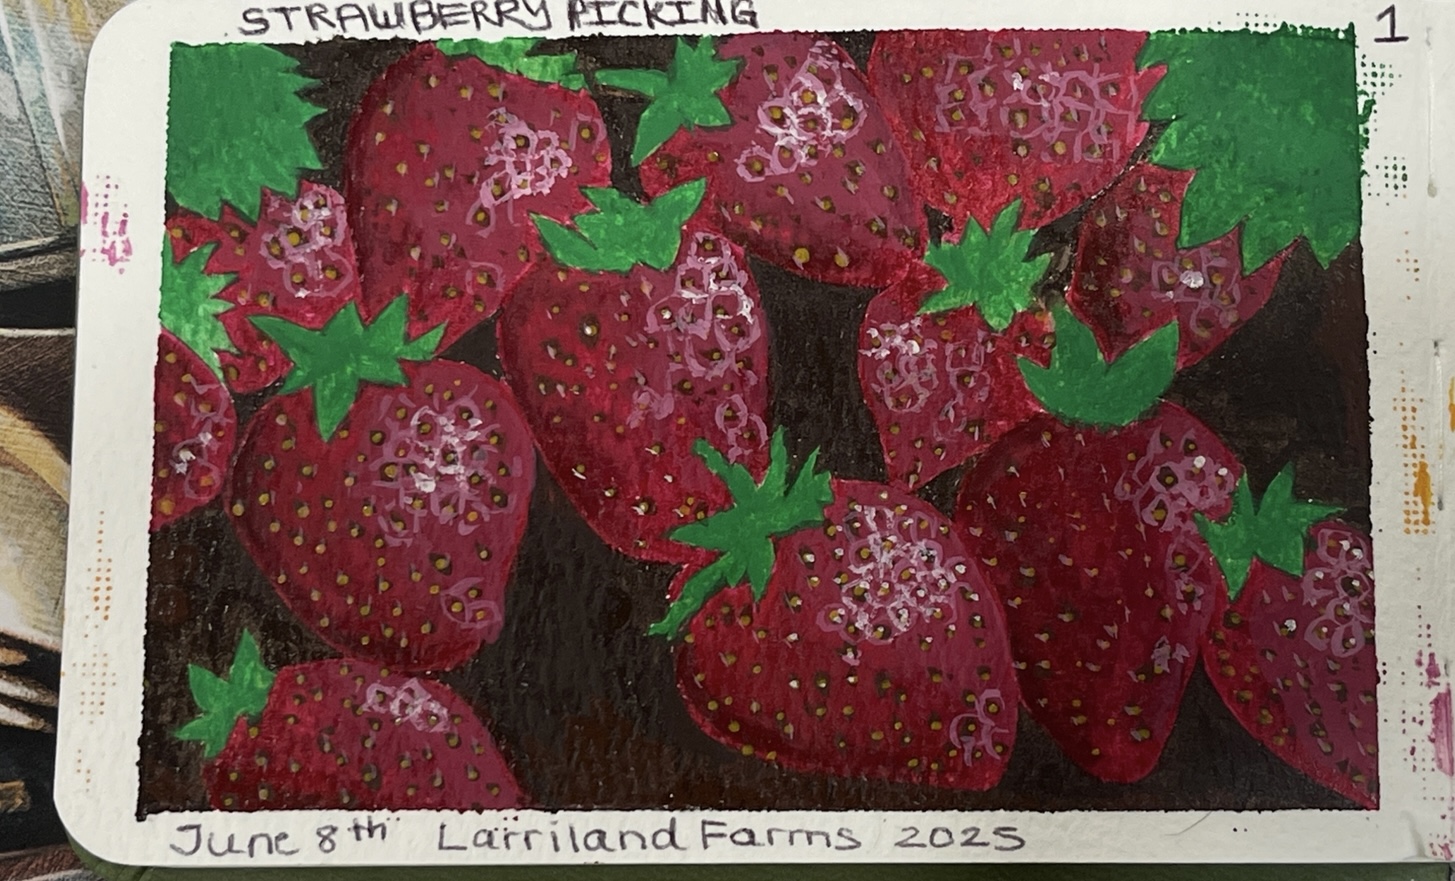 STRAWBERRY PICKING
1
June 8th Larriland Farms 2025